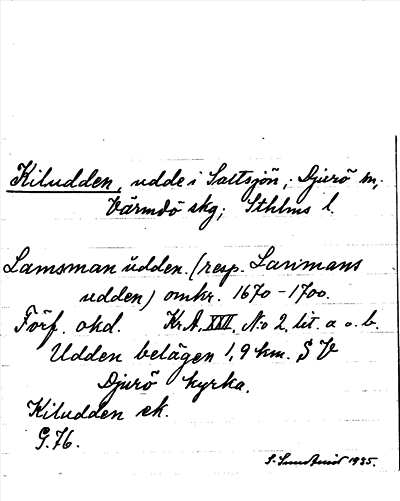 Kiludden, udde i Saltsjön, Djurö sn,
Värmdö skg; Sthlms l.
Lamsman udden. (resp. Larimans
udden) omkr. 1670-1700.
Förf. okd. Kr.A. XXII, No 2, lit. a o. b.
Udden belägen 1,9 km. SV
Djurö kyrka.
Kiludden ek.
G.76.
1935.